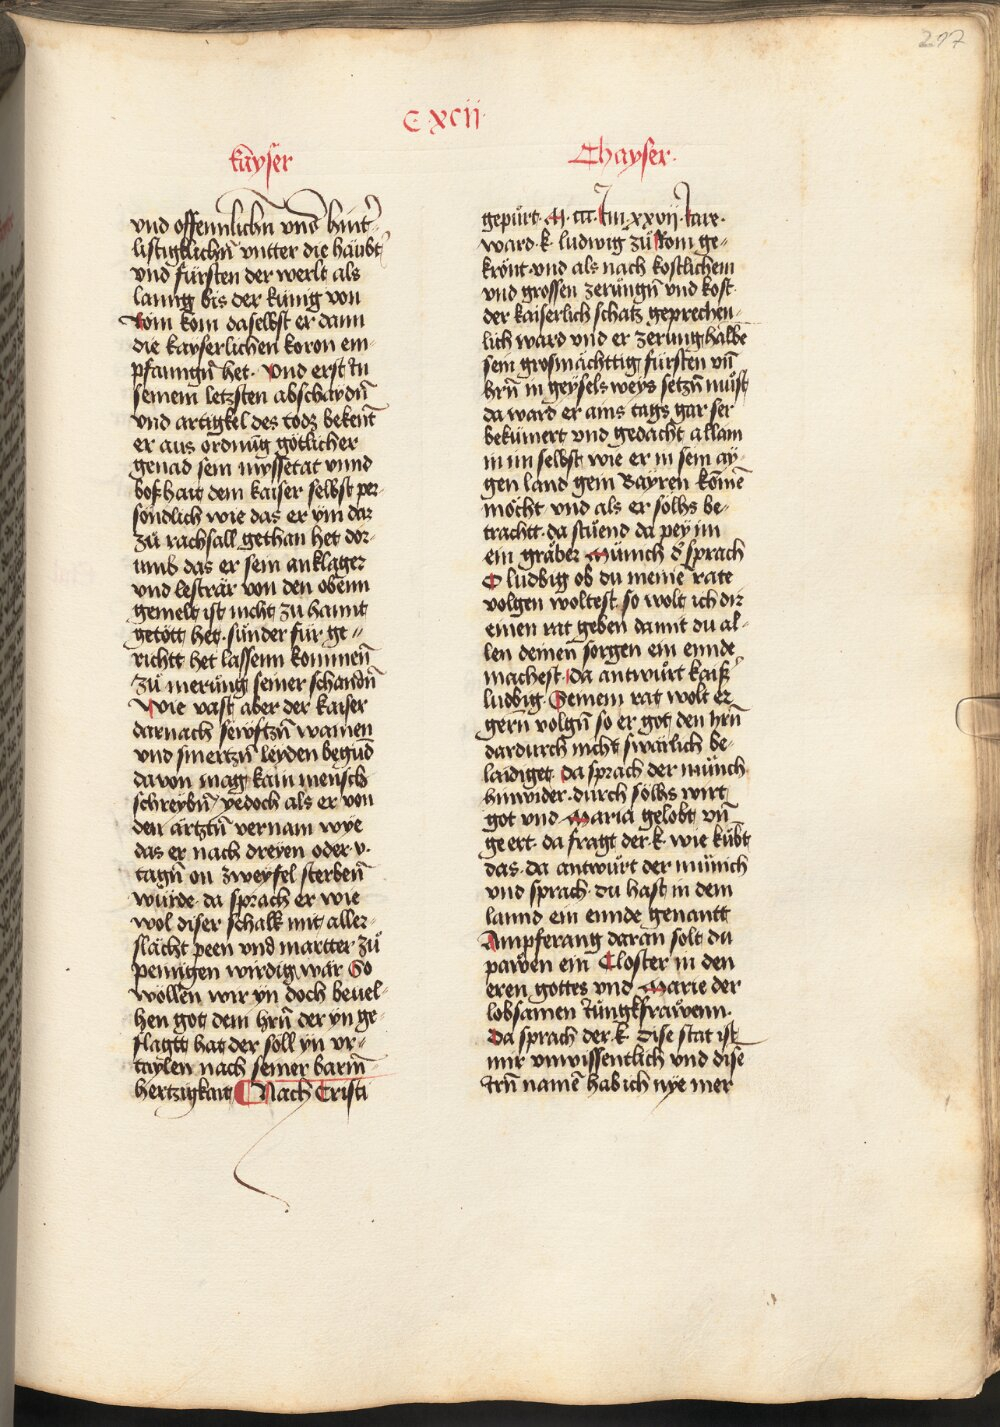 297
C xcii
kayser
Chayser.
vnd offennlichñ vnd hint-
listigklichñ vntter die häubt
vnd fürsten der werlt als
lanng bis der künig von
Rom kom daselbst er dann
die kayserlichen koron em-
pfanngñ het. Vnd erst In
seinem letzsten abschaydñ
vnd artigkel des todz bekent
er aus ordnũg götlicher
genad sein myssetat vnnd
boßhait dem kaiser selbst per
söndlich wie das er ym dar
zů rachsall gethan het dor-
umb das er sein anklager
vnd lesträr von den obenn
gemelt ist nicht zu hannt
getött het. sůnder für ge-
richtt het lassenn kommenñ
zů merũng seiner schandñ
Wie vast aber der kaiser
darnach sewfftzñ wainen
vnd smertzñ leyden begũd
davon mag kain mensch
schreybñ yedoch als er von
den ärtztñ vernam wye
das er nach dreyen oder v.
tagñ on zweyfel sterbeñ
würde. da sprach er wie
wol diser schalk mit aller-
slächt peen vnd martter zů
peinigen wirdig wär So
wöllen wir yn doch bevel-
hen got dem hrñ der yn ge-
slagtt hat der soll yn vr-
taylen nach seiner barm̃-
hertzigkait Nach Cristi
gepürt. M. ccc Im xxvii. Iare.
ward k. ludwig zů Rom ge-
krönt vnd als nach kostlichem
vnd grossen zerũngñ vnd kost
der kaiserlich schatz geprechen-
lich ward vnd er zerung halbe
sein grosmächttig fürsten vñ
hrñ in geysels weys setzñ můst
da ward er ains tags gar ser
bekümert vnd gedacht allain
in im selbst wie er in sein ay-
gen land gein Bayren kömẽ
möcht vnd als er sölhs be-
trachtt. da stůend da pey im
ein gräber Münich d' sprach
O ludbig ob du meinẽ rate
volgen woltest so wolt ich dir
einen rat geben damit du al-
len deinen sorgen ein ennde
machest. da antwürt kaiß'
ludbig. Seinem rat wolt er
gern volgñ so er got den hrñ
dardurch nicht swärlich be-
laidiget. da sprach der münch
hinwider. durch sölhs wirt
got vnd Maria gelobt vñ
geert. da fragt der k. wie kübt
das. da antwürt der münich
vnd sprach. du hast in dem
lannd ein ennde genantt
Ampferang daran solt du
pawen ein Closter in den
eren gottes vnd Marie der
lobsamen Iüngkfrawenn.
Da sprach der k. Dise stat ist
mir vnwissentlich vnd dise
Irñ namẽ hab ich nye mer